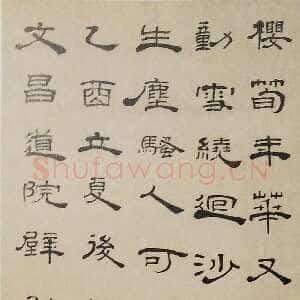 櫻筍年華又
動雪繞迴沙
生塵騷人可
乙酉立夏後
文昌道院壁
Shufawang.CN